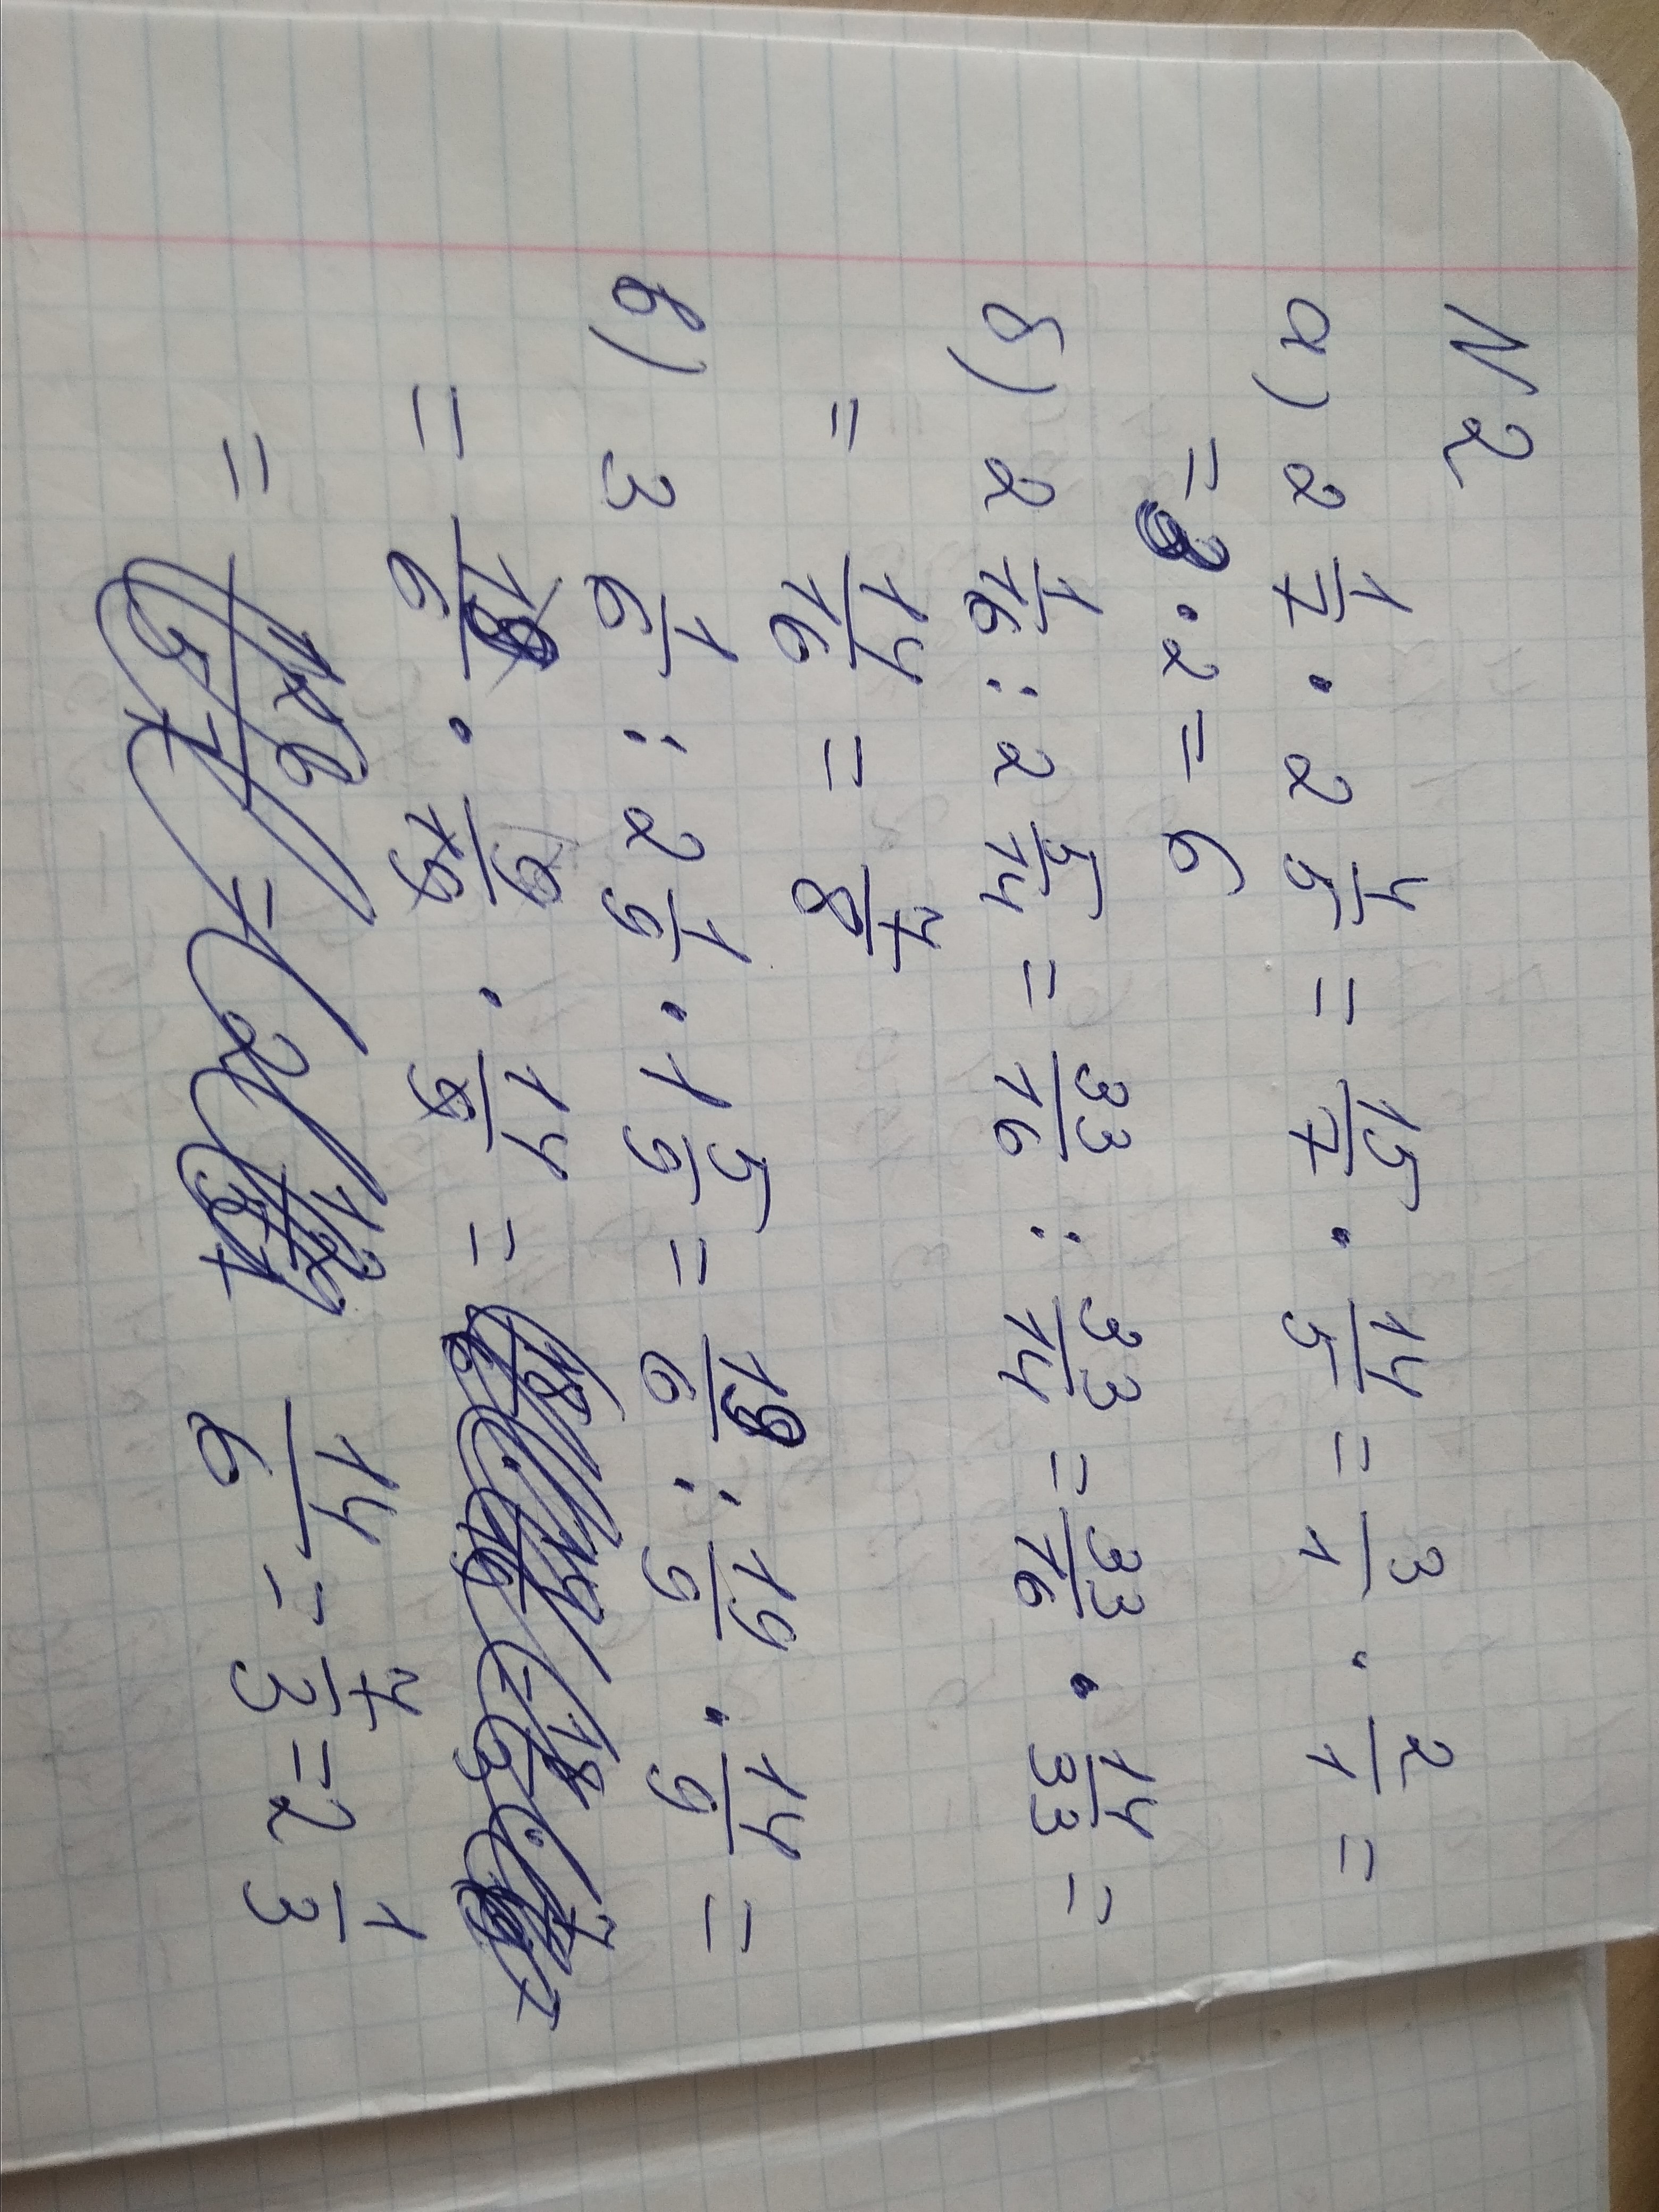 N2
а) 2 1/7 · 2 4/5 = 15/7 · 14/5 = 3/1 · 2/1 =
= · 2 = 6
б) 2 1/16 : 2 5/14 = 33/16 : 33/14 = 33/16 · 14/33 =
= 14/16 = 7/8
в) 3 1/6 : 2 1/9 · 1 5/9 = 19/6 : 19/9 · 14/9 =
= 19/6 · 9/19 · 14/9 =
= 14/6 = 7/3 = 2 1/3